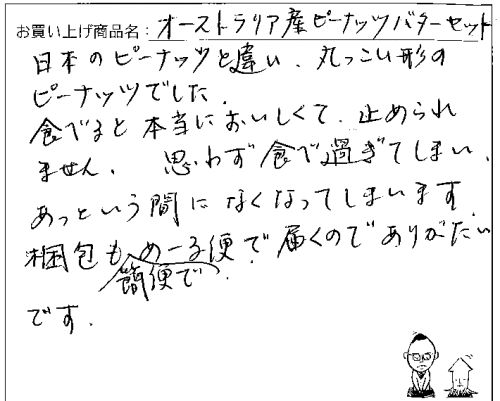 お買い上げ商品名：オーストラリア産ピーナッツバターセット
日本のピーナッツと違い、丸っこい形の
ピーナッツでした。
食べると本当においしくて、止められ
ません。　思わず食べ過ぎてしまい、
あっという間になくなってしまいます。
梱包も めーる便で届くのでありがたい
簡便で、
です。